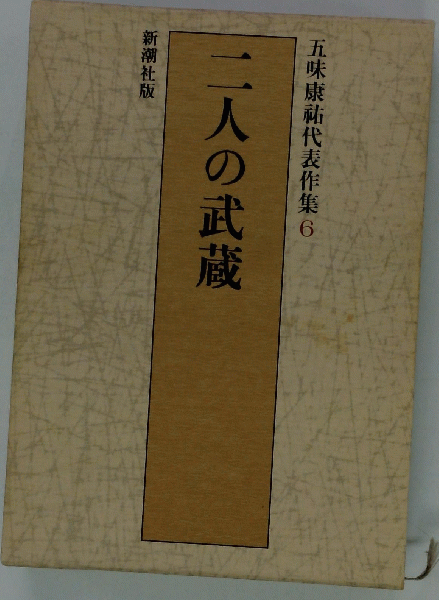 五味康祐代表作集6
二人の武蔵
新潮社版